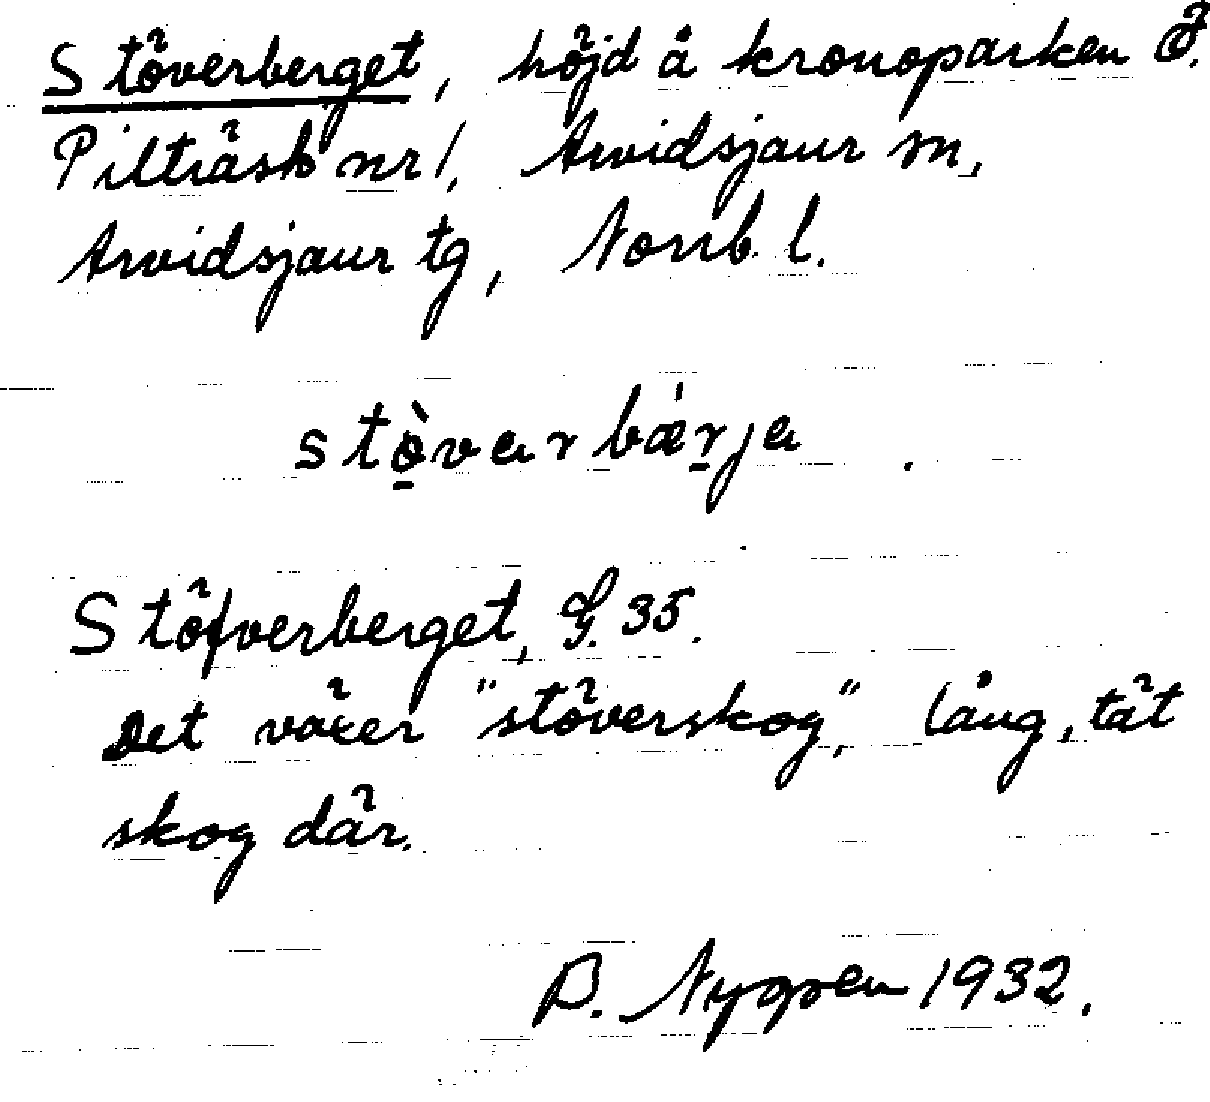 Stöverberget, höjd å kronoparken Ö.
Pilträsk nr 1, Arvidsjaur m,
Arvidsjaur tg, Norrb. l.
stò̱varbæ̀ṟja
Stöfverberget, G. 35.
Det växer "stöverskog", lång, tät
skog där.
B. Nygren 1932.